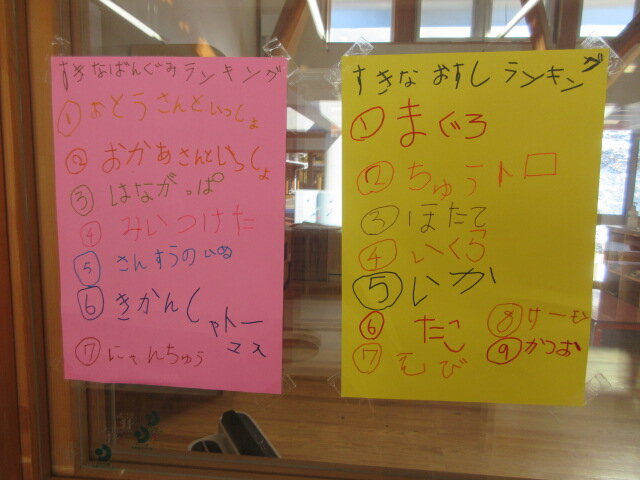 すきなばんぐみランキング
① おとうさんといっしょ
② おかあさんといっしょ
③ はなかっぱ
④ みいつけた
⑤ さんすうのいぬ
⑥ きかんしゃトーマス
⑦ にゃんちゅう
すきなおすしランキング
① まぐろ
② ちゅうトロ
③ ほたて
④ いくら
⑤ いか
⑥ たこ
⑦ えび
⑧ サーモン
⑨ かつお